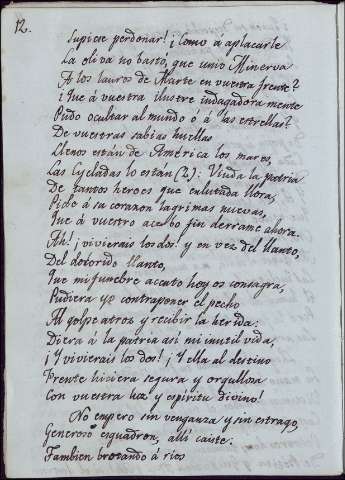 12.
Supiese perdonar! ¡Como á aplacarle
La oliva no bastó, que unió Minerva
A los lauros de Marte en vuestra frente?
¿Que á vuestra ilustre indagadora mente
Pudo ocultar al mundo ó á las estrellas?
De vuestras sabias huellas
Llenos están de América los mares,
Las Cycladas lo están (2): Viuda la patria
De tantos heroes que enlutada llora,
Pide á su corazon lagrimas nuevas,
Que á vuestro acerbo fin derrame ahora.
Ah! ¡vivierais los dos! y en vez del llanto,
Del dolorido llanto,
Que mi funebre acento hoy os consagra,
Pudiera yo contraponer el pecho
Al golpe atroz y recibir la herida:
Diera á la patria asi mi inutil vida,
¡Y vivierais los dos! ¡Y ella al destino
Frente hiciera segura y orgullosa
Con vuestra luz y espíritu divino!
No empero sin venganza y sin estrago,
Generoso esquadron, allí caiste:
Tambien brotando á rios